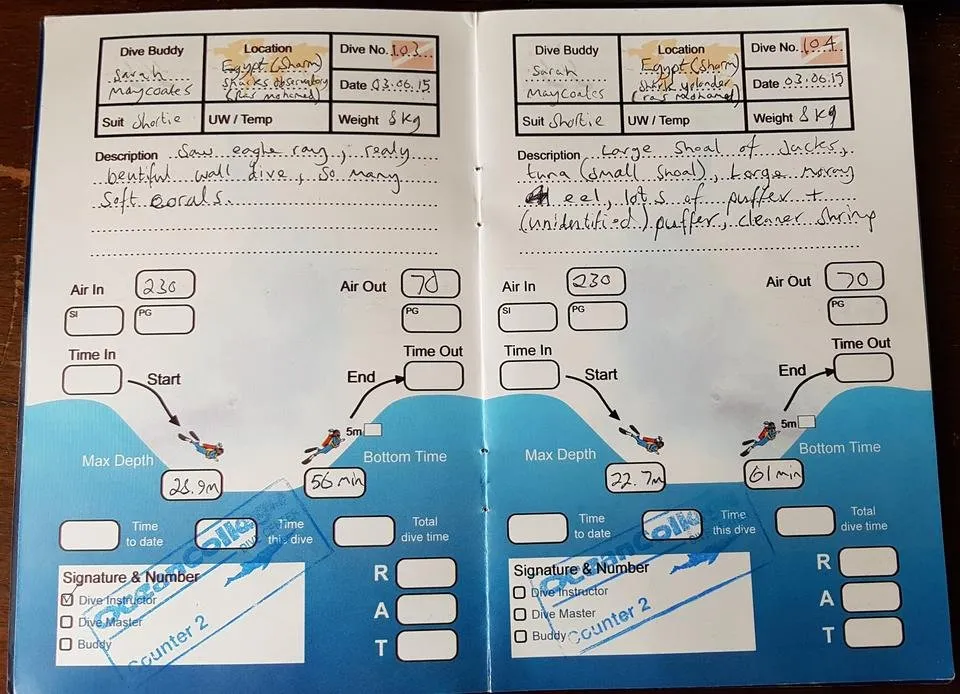 Dive Buddy
Sarah
Maycoates
Location
Egypt (Sharm)
Sharks observatory
(Ras mohamed)
Dive No. 103
Date 03.06.15
Suit Shortie
UW / Temp
Weight 8 kg
Description Saw eagle ray, realy
beutiful wall dive, so many
soft corals.
Air In 230
Air Out 70
SI
PG
PG
Time In
Time Out
Start
End
5m
Max Depth
Bottom Time
28.9m
56 min
Time
to date
Time
this dive
Total
dive time
Signature & Number
Dive Instructor
Dive Master
Buddy
R
A
T
Counter 2
Dive Buddy
Sarah
Maycoates
Location
Egypt (Sharm)
Shark yolanda
(ras mohamed)
Dive No. 104
Date 03.06.15
Suit Shortie
UW / Temp
Weight 8 kg
Description Large Shoal of Jacks,
tuna (small shoal), Large moray
eel, lots of puffer +
(unidentified) puffer, cleaner shrimp
Air In 230
Air Out 70
SI
PG
PG
Time In
Time Out
Start
End
5m
Max Depth
Bottom Time
22.7m
61 min
Time
to date
Time
this dive
Total
dive time
Signature & Number
Dive Instructor
Dive Master
Buddy
R
A
T
Counter 2